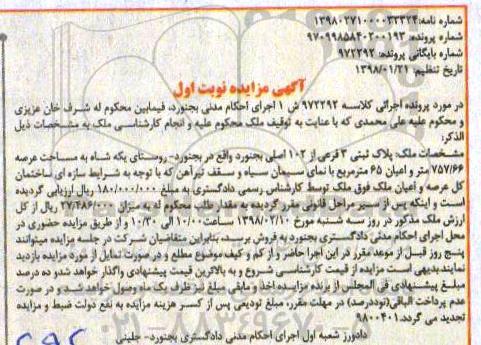 شماره نامه:۱۳۹۸۰۲۷۱۰۰۰۰۳۳۳۲۴
شماره پرونده: ۹۷۰۹۹۸۵۸۴۰۲۰۰۱۹۳
شماره بایگانی پرونده: ۹۷۲۲۹۲
تاریخ تنظیم: ۱۳۹۸/۰۱/۲۱
آگهی مزایده نوبت اول
در مورد پرونده اجرائی کلاسه ۹۷۲۲۹۲ ش ۱ اجرای احکام مدنی بجنورد، فیمابین محکوم له شرف خان عزیزی
و محکوم علیه علی محمدی که با عنایت به توقیف ملک محکوم علیه و انجام کارشناسی ملک به مشخصات ذیل
الذکر:
مشخصات ملک: پلاک ثبتی ۳ فرعی از ۱۰۲ اصلی بجنورد واقع در بجنورد- روستای یکه شاه به مساحت عرصه
۷۵۷/۶۶ متر و اعیان ۶۵ مترمربع با نمای سیمان سیاه و سقف تیرآهن که با توجه به شرایط سازه ای ساختمان
کل عرصه و اعیان ملک فوق ملک توسط کارشناس رسمی دادگستری به مبلغ ۱۸۰/۰۰۰/۰۰۰ ریال ارزیابی گردیده
است و اینکه پس از سیر مراحل قانونی مقرر گردیده به مقدار طلب محکوم له به میزان ۲۷/۴۸۶/۰۰۰ ریال از کل
ارزش ملک مذکور در روز سه شنبه مورخ ۱۳۹۸/۰۲/۱۰ ساعت ۱۰/۰۰ الی ۱۰/۳۰ و از طریق مزایده حضوری در
محل اجرای احکام مدنی دادگستری بجنورد به فروش برسد، بنابراین متقاضیان شرکت در جلسه مزایده میتوانند
پنج روز قبل از موعد مقرر در این اجرا حاضر و از کم و کیف موضوع مطلع و در صورت تمایل از مورد مزایده بازدید
نمایند.بدیهی است مزایده از قیمت کارشناسی شروع و به بالاترین قیمت پیشنهادی واگذار خواهد شد.و ده درصد
مبلغ پیشنهادی فی المجلس از برنده مزایده اخذ و مابقی مبلغ نیز ظرف یک ماه وصول خواهد شد و در صورت
عدم پرداخت الباقی(نوددرصد) در مهلت مقرر، مبلغ تودیعی پس از کسر هزینه مزایده به نفع دولت ضبط و مزایده
تجدید می گردد.۹۸۰۰۴۰۱
دادورز شعبه اول اجرای احکام مدنی دادگستری بجنورد- جلینی
۰۲۱-۸۸۳۴۹۶۷۰